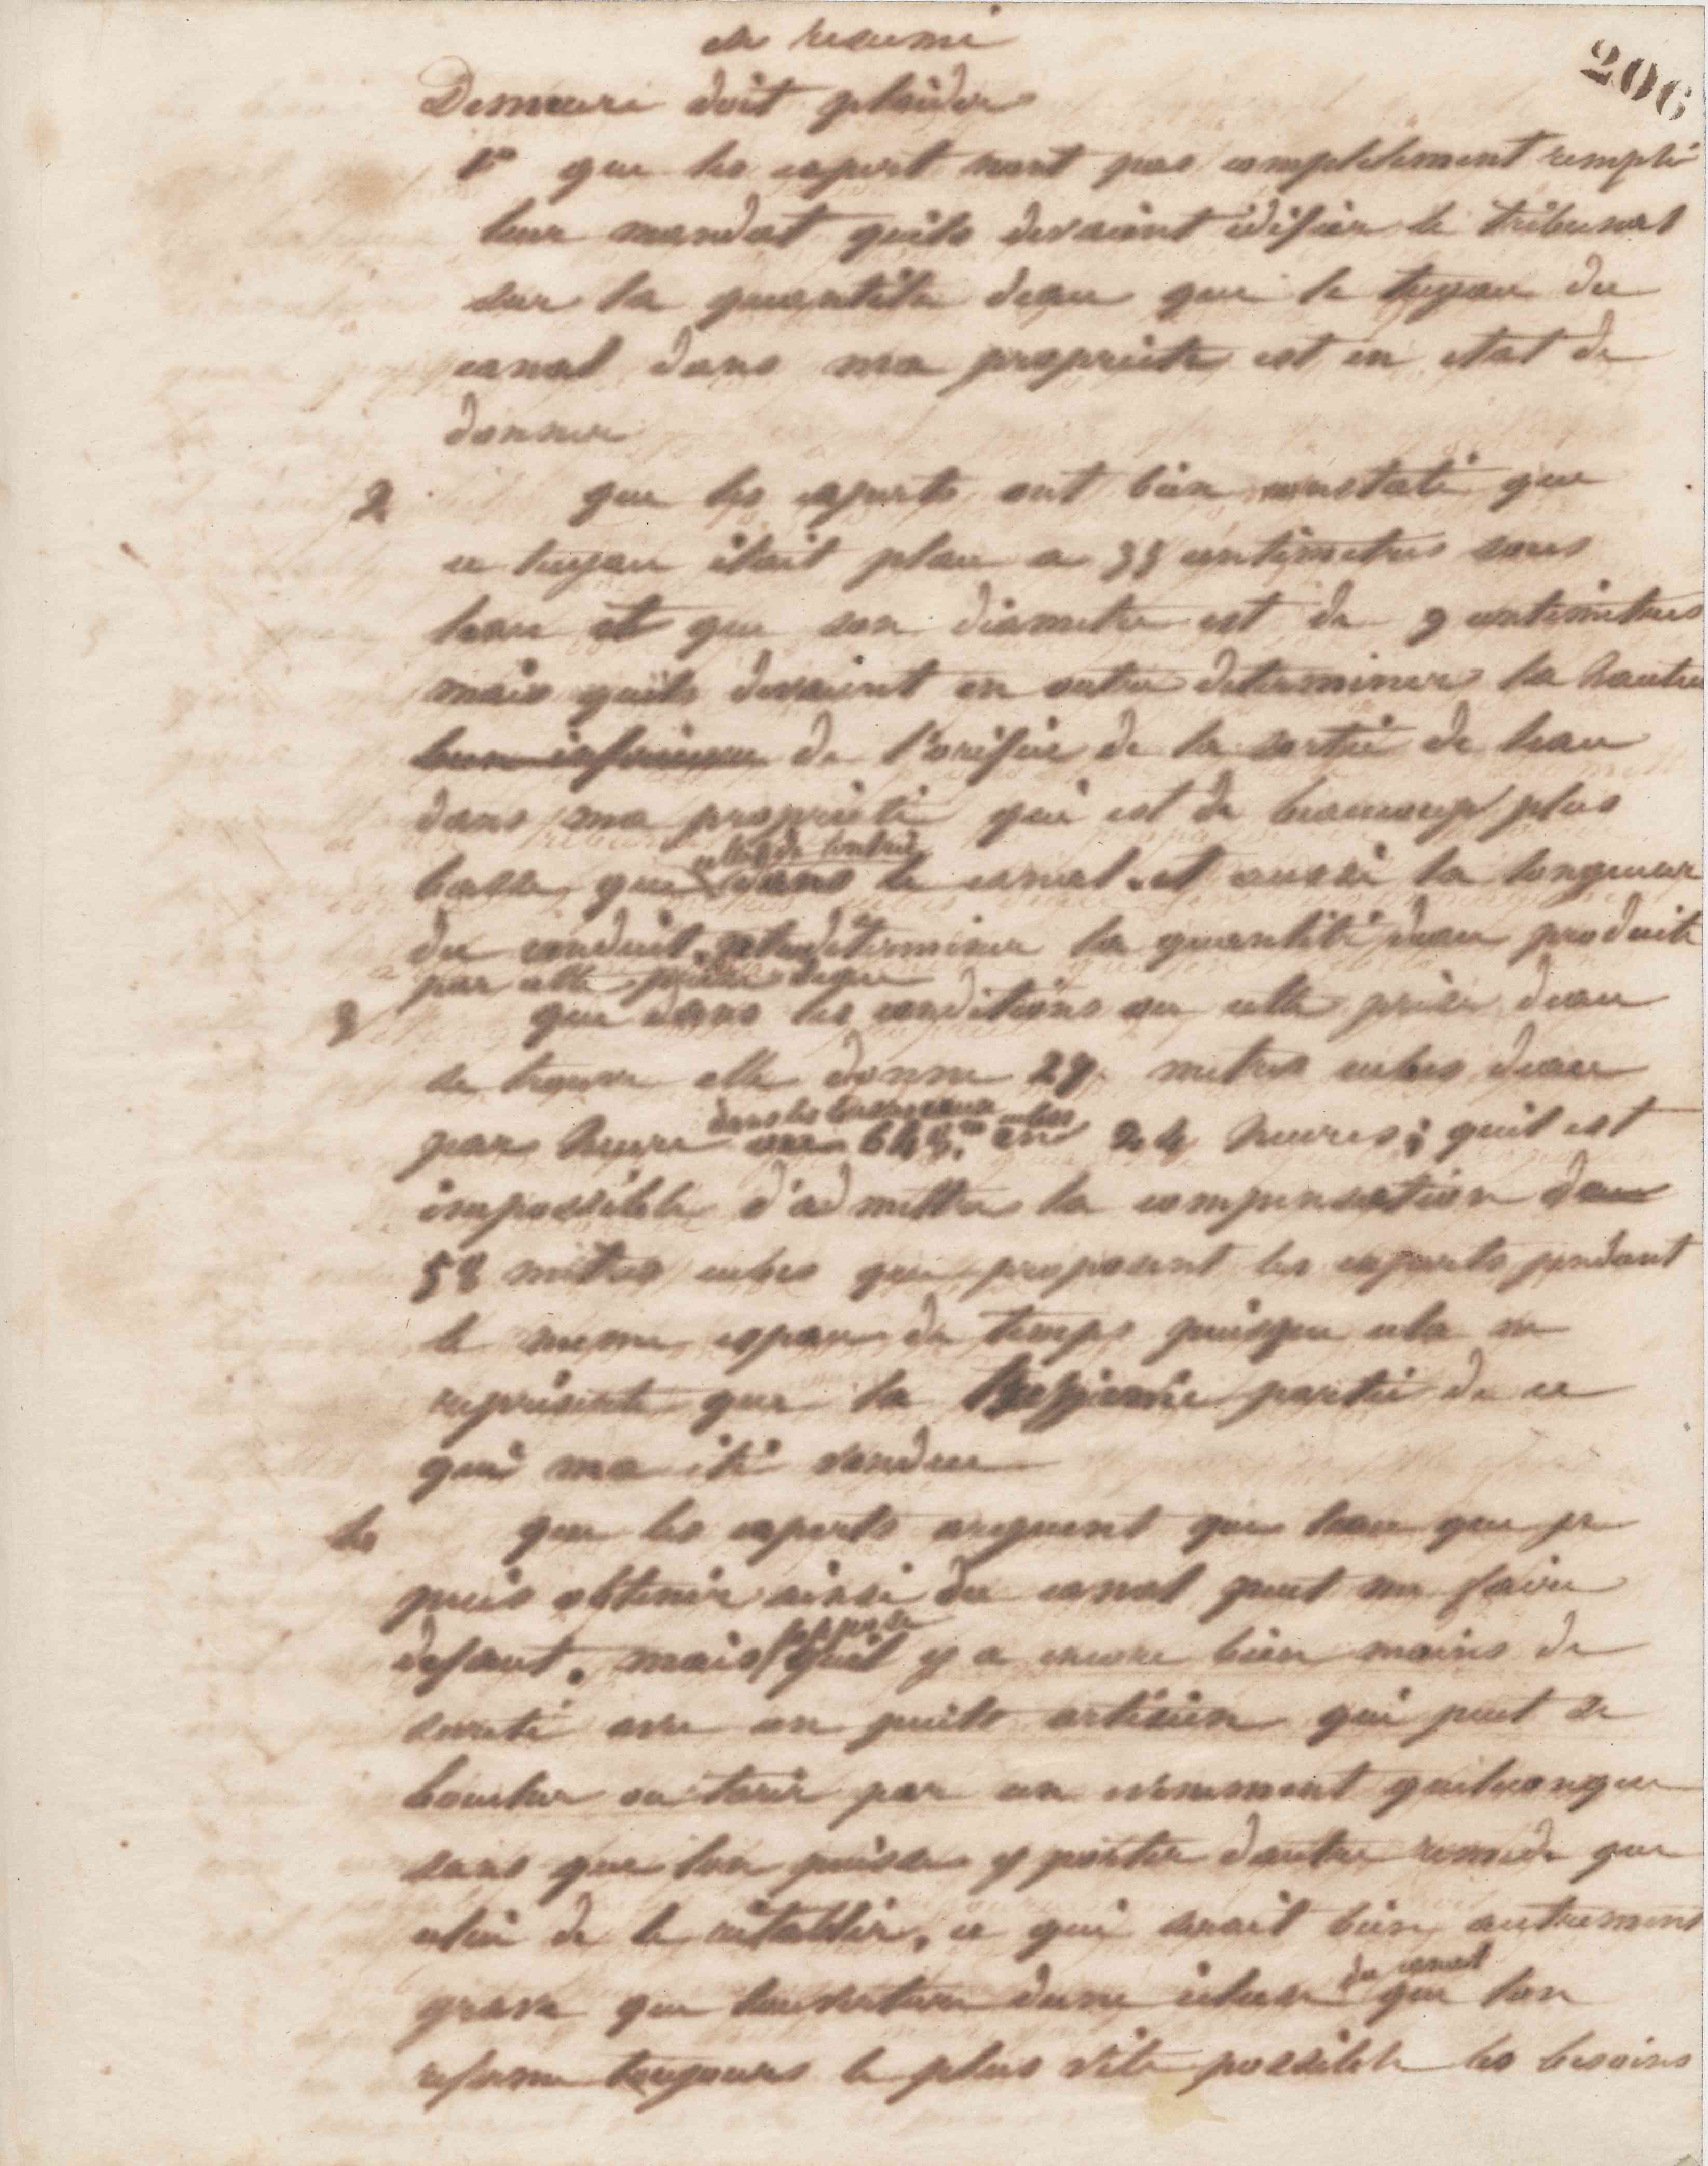 en resumé
206
Demeure doit plaider
1o que les expert nont pas completement rempli
leur mandat quils devaient édifier le tribunal
sur la quantité deau que le tuyau du
canal dans ma propriete est en etat de
donner
2 que les experts ont bien constaté que
ce tuyau était place a 33 centimetres sous
leau et que son diametre est de 9 centimetres
mais quils devaient en outre determiner la hauteu
de l'orifice de la sortie de leau
dans ma propriété qui est de beaucoup plus
celle de lentrée
basse que dans le canal. et aussi la longueur
du conduit, determiner la quantité deau produite
par cette prise deau
3 que dans les conditions ou cette prise deau
se trouve elle donne 27 metres cubes deau
dans les cubes
par heure ou 648 m en 24 heures; quil est
impossible d'admettre la compensation de
58 mètres cubes que proposent les experts pendant
le meme espace de temps puisque cela ne
représente que la partie de ce
qui ma été vendue
4 que les experts arguent que leau que je
puis obtenir ainsi du canal peut me faire
defaut. mais quil y a encore bien moins de
sureté avec un puits artésien qui peut se
boucher ou tarir par un évenement quelconque
sans que lon puisse y porter dautre remede que
celui de le rétablir, ce qui serait bien autrement
du canal
grave que louverture dune écluse que lon
referme toujours le plus vite possible les besoins